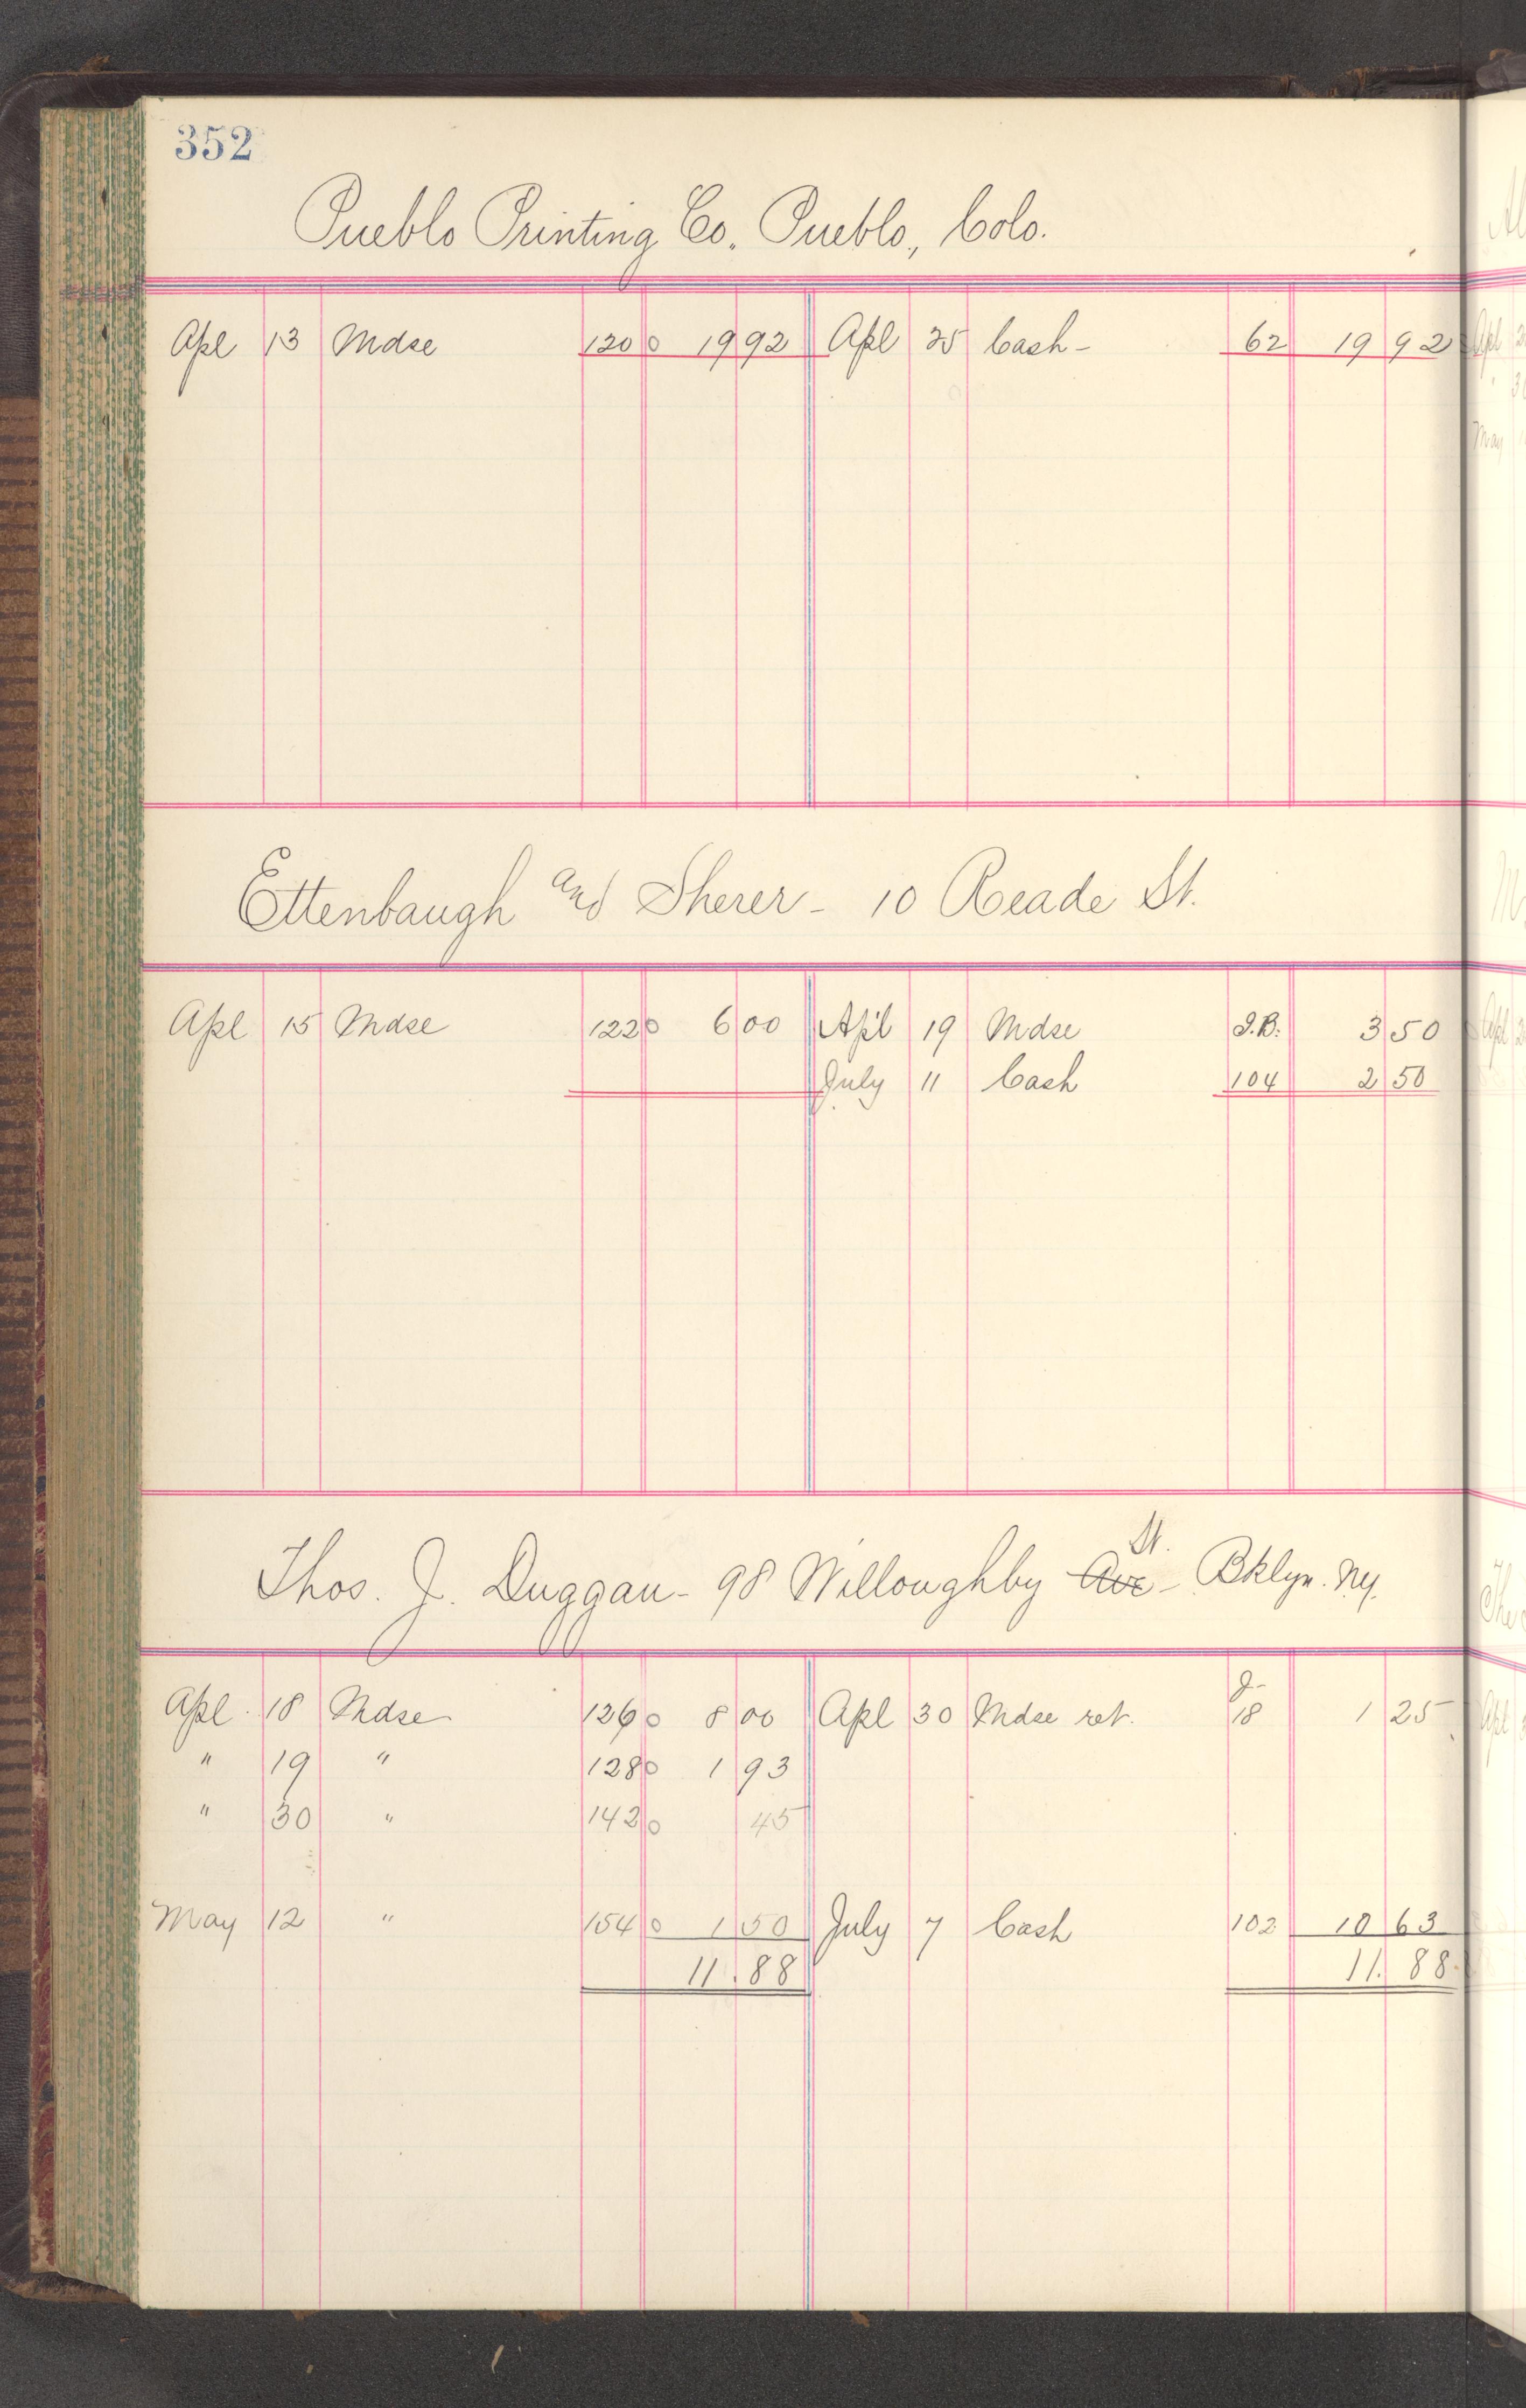 352
Pueblo Printing Co. Pueblo, Colo.
Apl 13 Mdse 120 0 19 92 Apl 25 Cash - 62 19 92
Ettenbaugh and Sherer - 10 Reade St.
Apl 15 Mdse 122 0 6 00 Apl 19 Mdse J.B. 3 50
July 11 Cash 104 2 50
Thos. J. Duggan - 98 Willoughby Ave St. - Bklyn. Ny.
Apl 18 Mdse 126 0 8 00 Apl 30 Mdse ret. J- 18 1 25
" 19 " 128 0 1 93
" 30 " 142 0 45
May 12 " 154 0 1 50 July 7 Cash 102 10 63
11.88 11.88